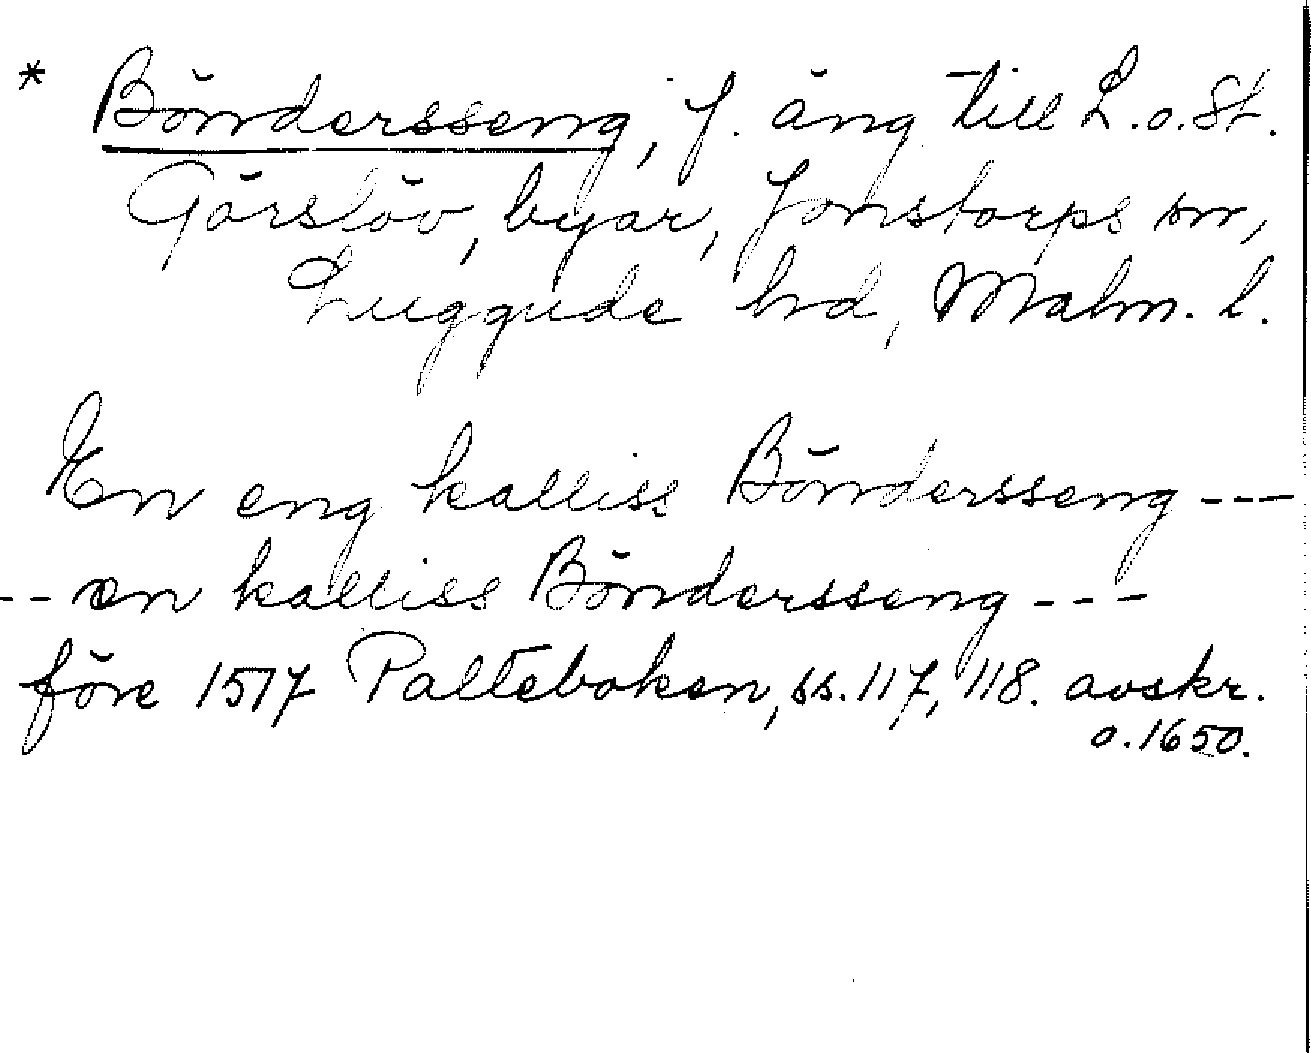 * Böndersseng, f. äng till L. o. St.
Görslöv, byar, Jonstorps sn,
Luggude hd, Malm. l.
En eng kalliss Böndersseng ---
-- en kalliss Böndersseng ---
före 1517 Palteboken, ss. 117, 118. avskr.
o. 1650.